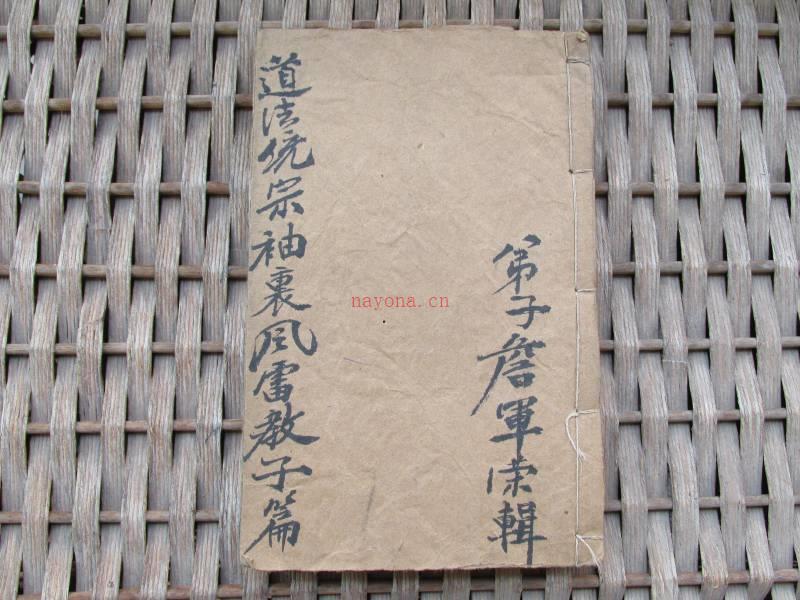 弟子詹軍荣輯
道法统宗袖裏风雷教子篇
nayona.cn